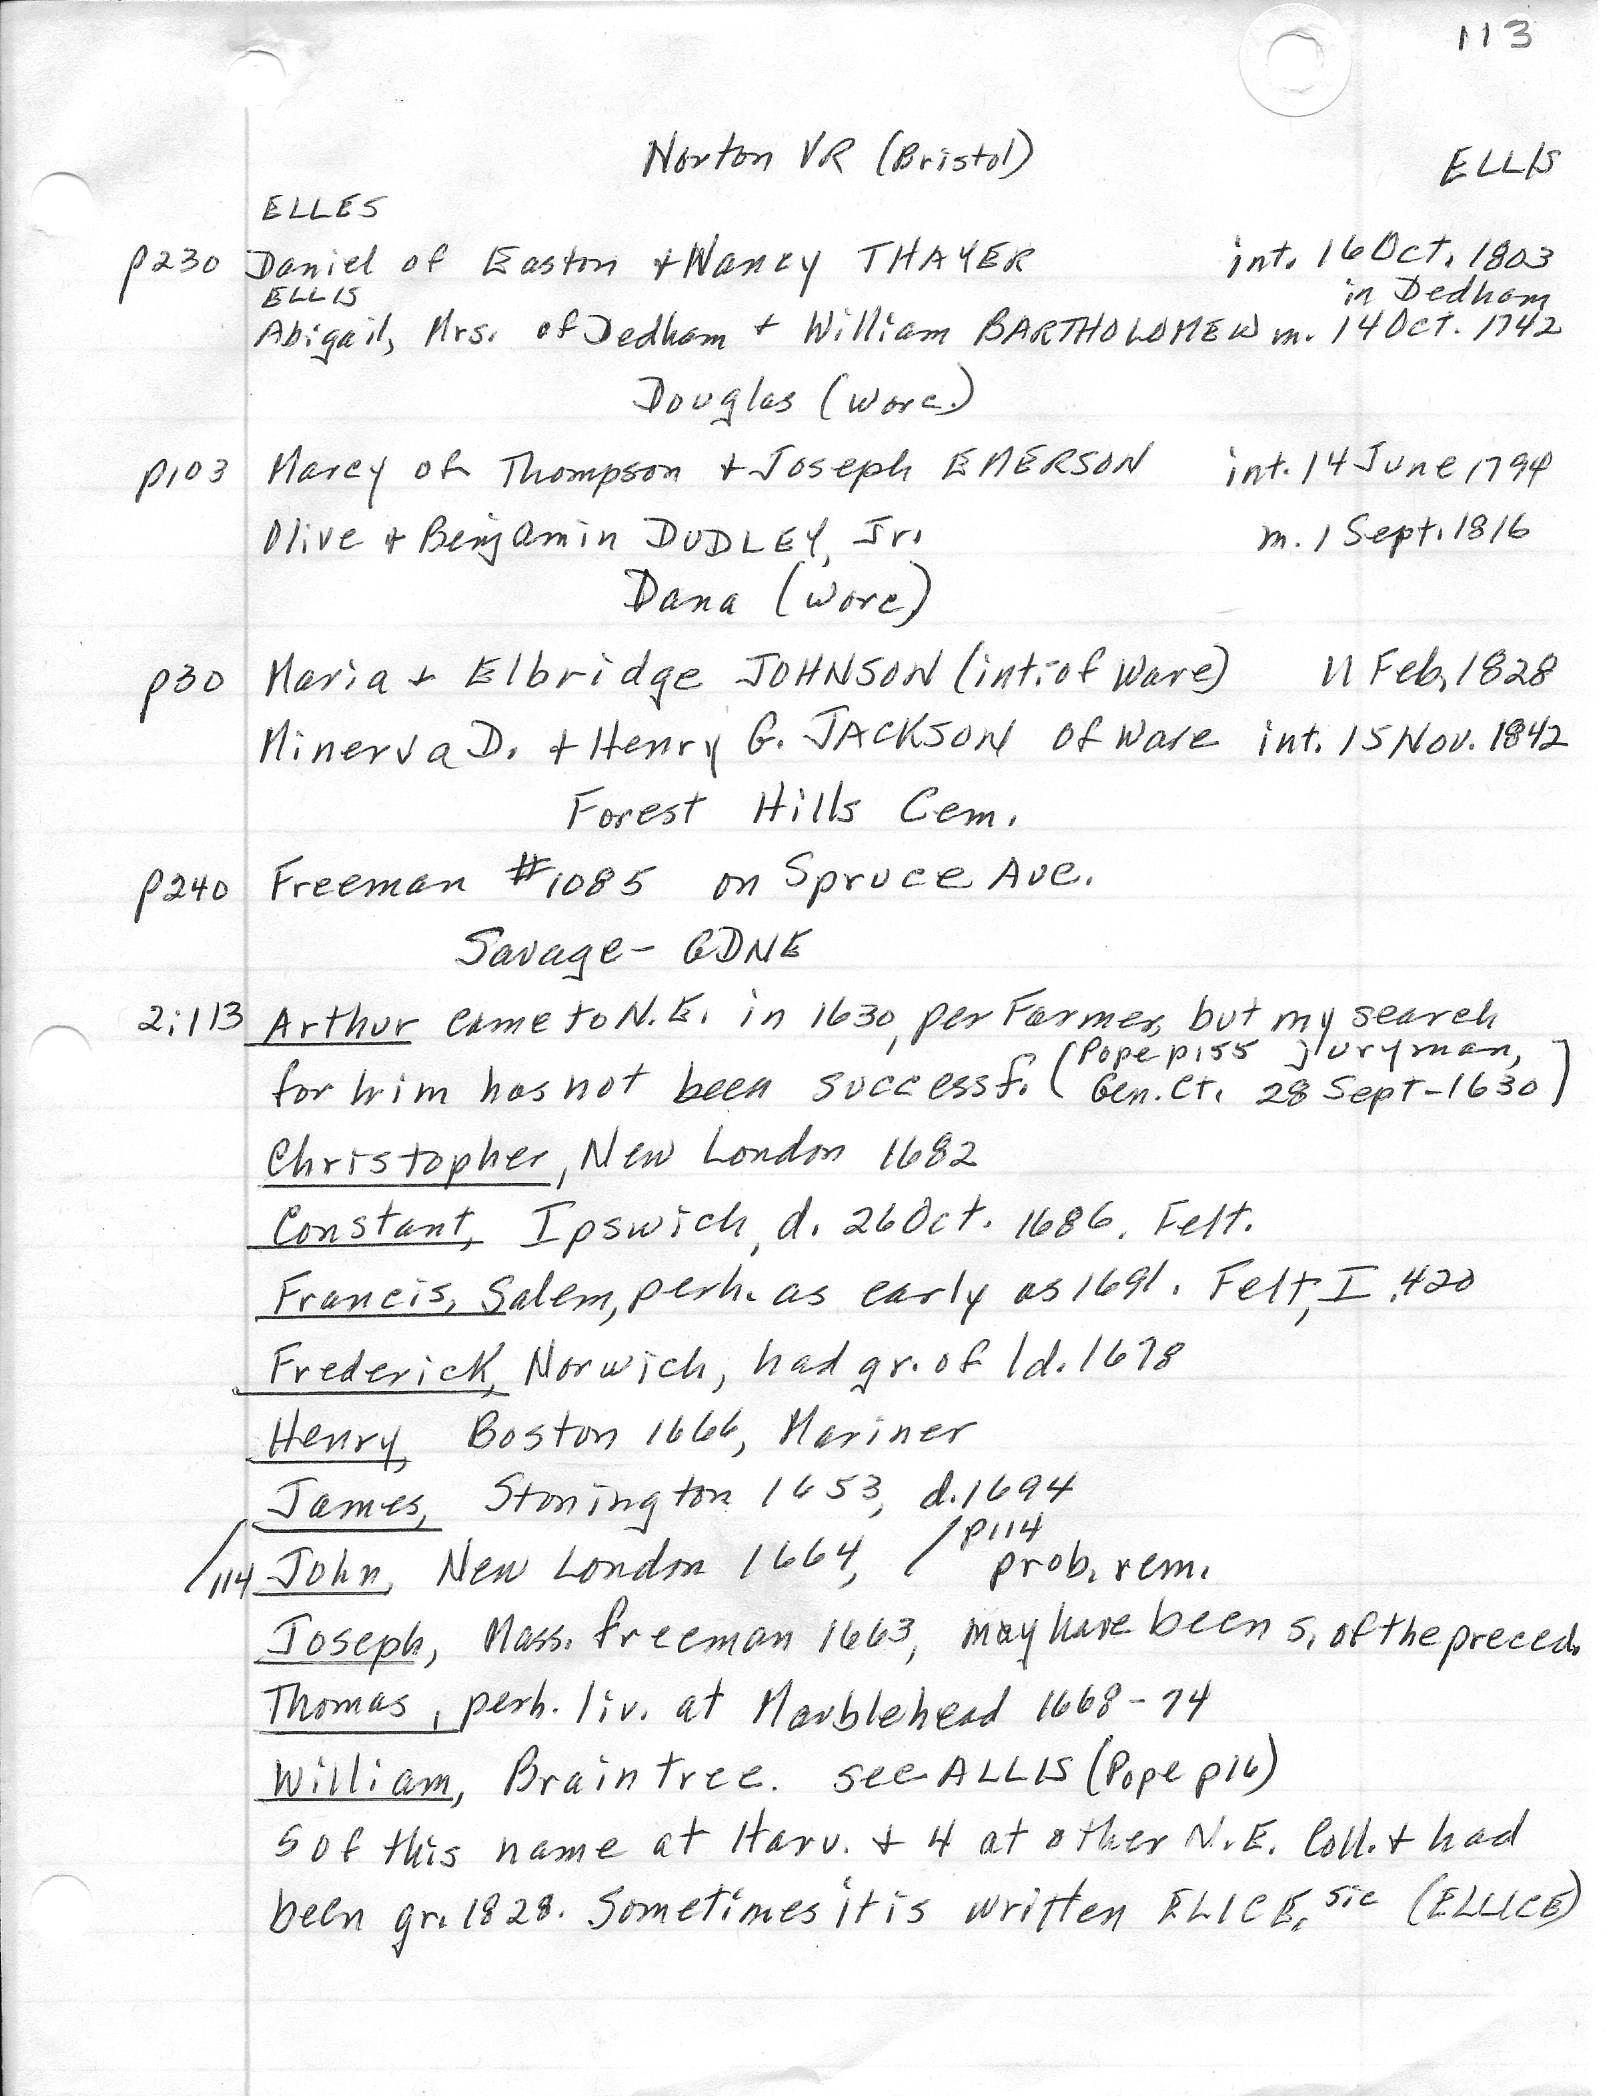 113
Norton VR (Bristol)
ELLIS
ELLES
p230 Daniel of Easton + Nancy THAYER int. 16 Oct. 1803
ELLIS in Dedham
Abigail, Mrs. of Dedham + William BARTHOLOMEW m. 14 Oct. 1742
Douglas (Worc.)
p103 Marcy of Thompson + Joseph EMERSON int. 14 June 1794
Olive + Benjamin DUDLEY, Jr. m. 1 Sept. 1816
Dana (Worc)
p30 Maria + Elbridge JOHNSON (int. of Ware) 11 Feb, 1828
Minerva D. + Henry G. JACKSON of Ware int. 15 Nov. 1842
Forest Hills Cem.
p240 Freeman #1085 on Spruce Ave.
Savage - GDNE
2:113 Arthur came to N.E. in 1630, per Farmer, but my search
(Pope p155 juryman,
for him has not been successf. Gen. Ct. 28 Sept - 1630)
Christopher, New London 1682
Constant, Ipswich, d. 26 Oct. 1686. Felt.
Francis, Salem, perh. as early as 1691. Felt, I .420
Frederick, Norwich, had gr. of ld. 1678
Henry, Boston 1666, Mariner
James, Stonington 1653, d. 1694
/p114
/114 John, New London 1664, prob. rem.
Joseph, Mass. freeman 1663, may have been s. of the preced.
Thomas, perh. liv. at Marblehead 1668-74
William, Braintree. see ALLIS (Pope p16)
5 of this name at Harv. + 4 at other N.E. Coll. + had
been gr. 1828. Sometimes it is written ELICE, sic (ELLICE)